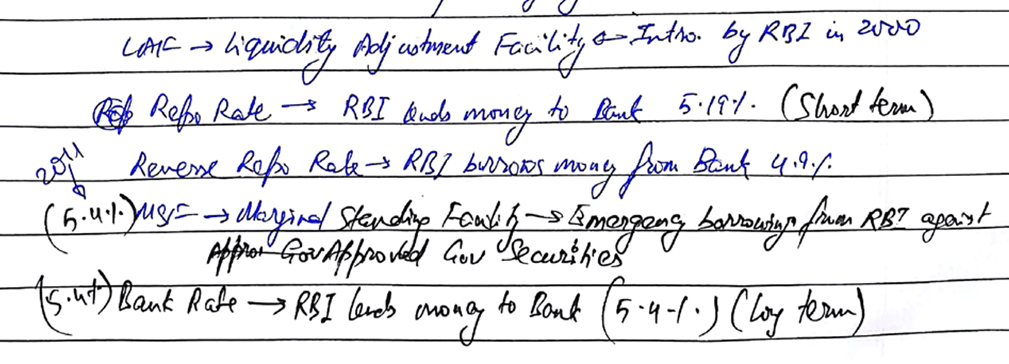 LAF → Liquidity Adjustment Facility ↔ Intro. by RBI in 2000
Repo Rate → RBI lends money to Bank 5.19%. (Short term)
2011 Reverse Repo Rate → RBI burrows money from Bank 4.9%.
(5.4%) MSF → Marginal Standing Facility → Emergency borrowings from RBI against
Approved Gov Securities
(5.4%) Bank Rate → RBI lends money to Bank (5.4%.) (Log term)